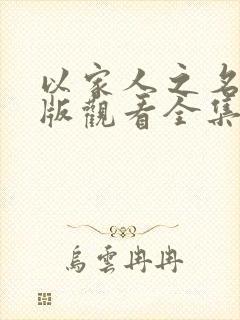 以家人之名
版觀看全集
烏雲冉冉